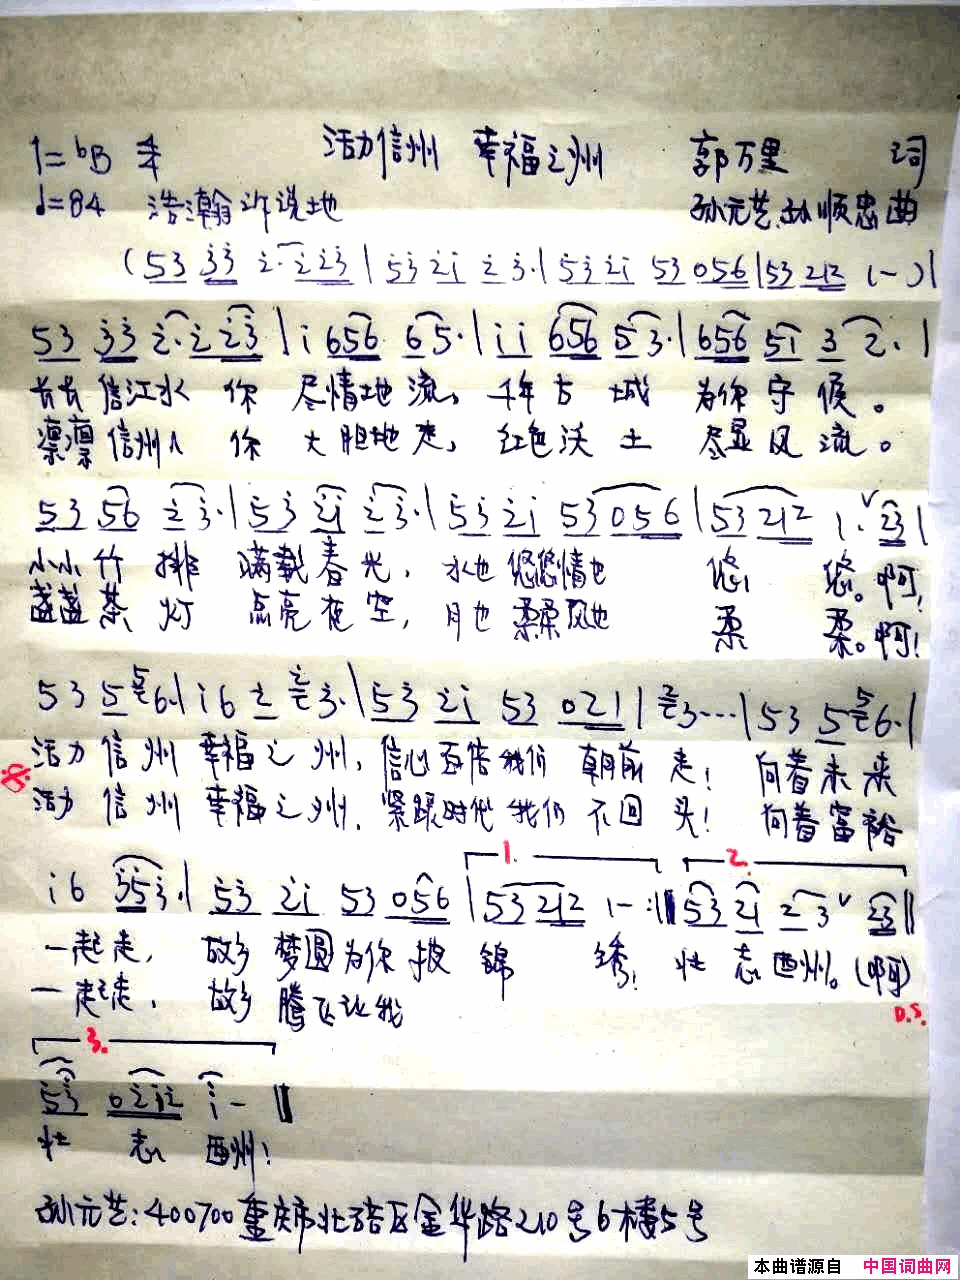 1=bB 4/4 活力信州 幸福之州 郭万里 词
♩=84 浩瀚 诉说地 孙元艺、孙顺忠 曲
(53 33 2·223 | 53 21 23· | 5321 53056 | 53 212 1-) |
53 33 2·223 | i 656 65· | ii 656 53· | 656 51 3 2· |
长长信江水 你 尽情地流。千年古城 为你守候。
凛凛信州人 你 大胆地走,红色沃土 尽显风流。
53 56 23· | 53 21 23· | 53 21 53056 | 53 212 1·ᵛ23 |
小小竹排 满载春光,水也悠悠情也 悠 悠。啊!
盏盏茶灯 点亮夜空,月也柔柔风也 柔 柔。啊!
53 5 56· | i6 2 23· | 53 21 53 021 | 23--- | 53 5 56· |
活力信州幸福之州,信心百倍我们朝前走!向着未来
活力信州幸福之州,紧跟时代我们不回头!向着富裕
1. 2.
i6 353· | 53 21 53 056 | 53 212 1-:‖ 53 21 2-3ᵛ 23 ‖
一起走,故乡梦圆为你披锦 绣!壮志酉州。(啊)
一起走,故乡腾飞让我
D.S.
3.
53 0212 i- ‖
壮 志 酉州!
孙元艺:400700重庆市北碚区金华路210号6楼5号
本曲谱源自 中国词曲网